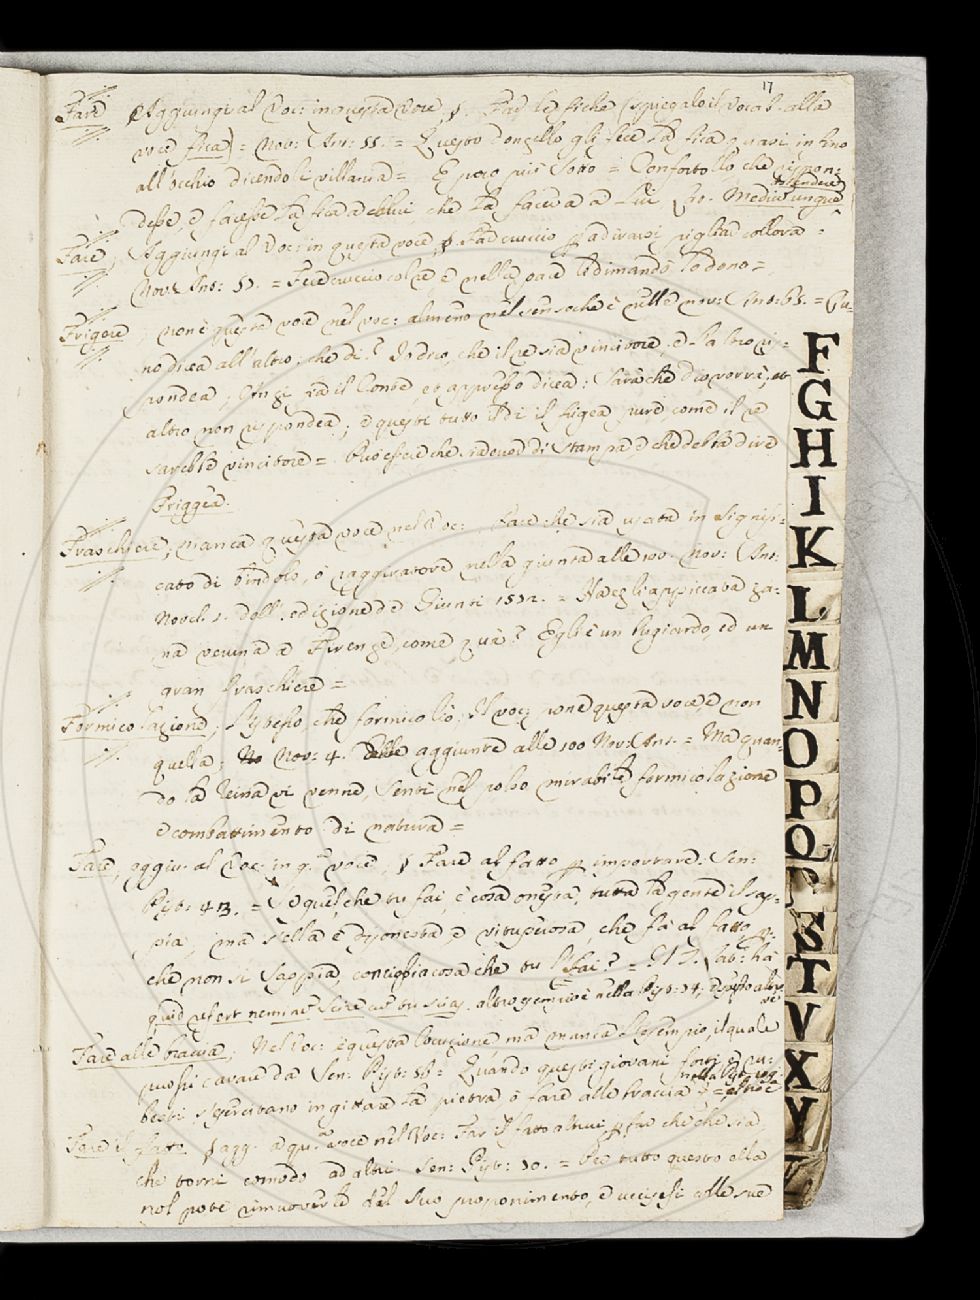 17
Fare Aggiungi al Voc: in questa voce, §. Far le fiche (spiegalo il Vocab. alla
voce fica) = Nov: Ant: 55. = Questo donzello gli fece la fica quasi in fino
all'occhio dicendoli villania = E poco più sotto = Confortollo che rispon-
desse, e facesse la fica a colui che la faceva a lui. Medium ostendere unguem
Fare; Aggiungi al Voc: in questa voce, §. Far cruccio p adirarsi, pigliar collora =
Nov: Ant: 51. = Fece cruccio col re e nella pace li dimandò lo dono =
Frigere, non è questa voce nel Voc: almeno nel senso che è nelle nov: Ant: = L'u-
no dicea all'altro; che di? Io dico, che il re sia vincitore; e l'altro ris-
pondea; Anzi fia il Conte, et appresso dicea: Sarà che dio vorrà; et
altro non rispondea; e questi tutto dì il frigea, pure come il re
sarebbe vincitore = Può essere che sia error di stampa e che debba dire
Friggea.
Fraschiere, manca questa voce nel Voc: Pare che sia usata in signifi-
cato di bindolo, o raggiratore nella giunta alle 100. Nov: Ant:
Novel. 1. dell'edizione de Giunti 1572. =
na veruna a Firenze, come quà? Egli è un bugiardo, ed un
gran fraschiere =
Formicolazione; l'istesso, che formicolìo. Il Voc: pone questa voce, e non
quella: Nov: 4. aggiunte alle 100 Nov: Ant: = Ma quan-
do la Reina vi venne, sentì nel polso mirabile formicolazione
e combattimento di natura =
Fare, aggiu: al Voc: in q.ta voce, § Fare al fatto p importare. Sen:
Pist: 43. = Se quel, che tu fai, è cosa onesta, tutta la gente il sap-
pia, ma s'ella è disonesta e vituperosa, che fà al fatto, p-
che non si sappia, conciossiacosa che tu il sai? = Il T. Lat: hà
quid refert neminem scire cum tu scias. altro esempio è nella Pist: 14:
Fare alle braccia; Nel Voc: è questa locuzione, ma manca l'esempio, il quale
puossi cavare da Sen: Pist: = Quando questi giovani forti e ru-
besti, s'esercitano in gittare la pietra, o fare alle braccia =
Fare il fatto. § agg. a qu.ta voce nel Voc: Far il fatto altrui p far che che sia,
che torni comodo ad altri. Sen: Pist: 10. = Per tutto questo ella
nol potè rimuovere dal suo proponimento, e uccisesi colle sue
F
G
H
I
K
L
M
N
O
P
Q
S
T
V
X
Y